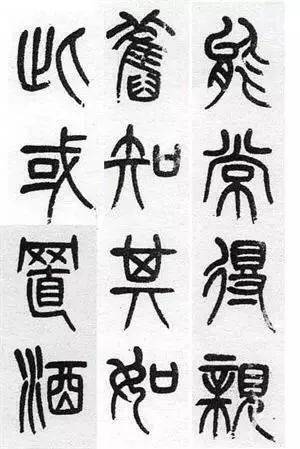 能常得親
舊知其如
此或置酒